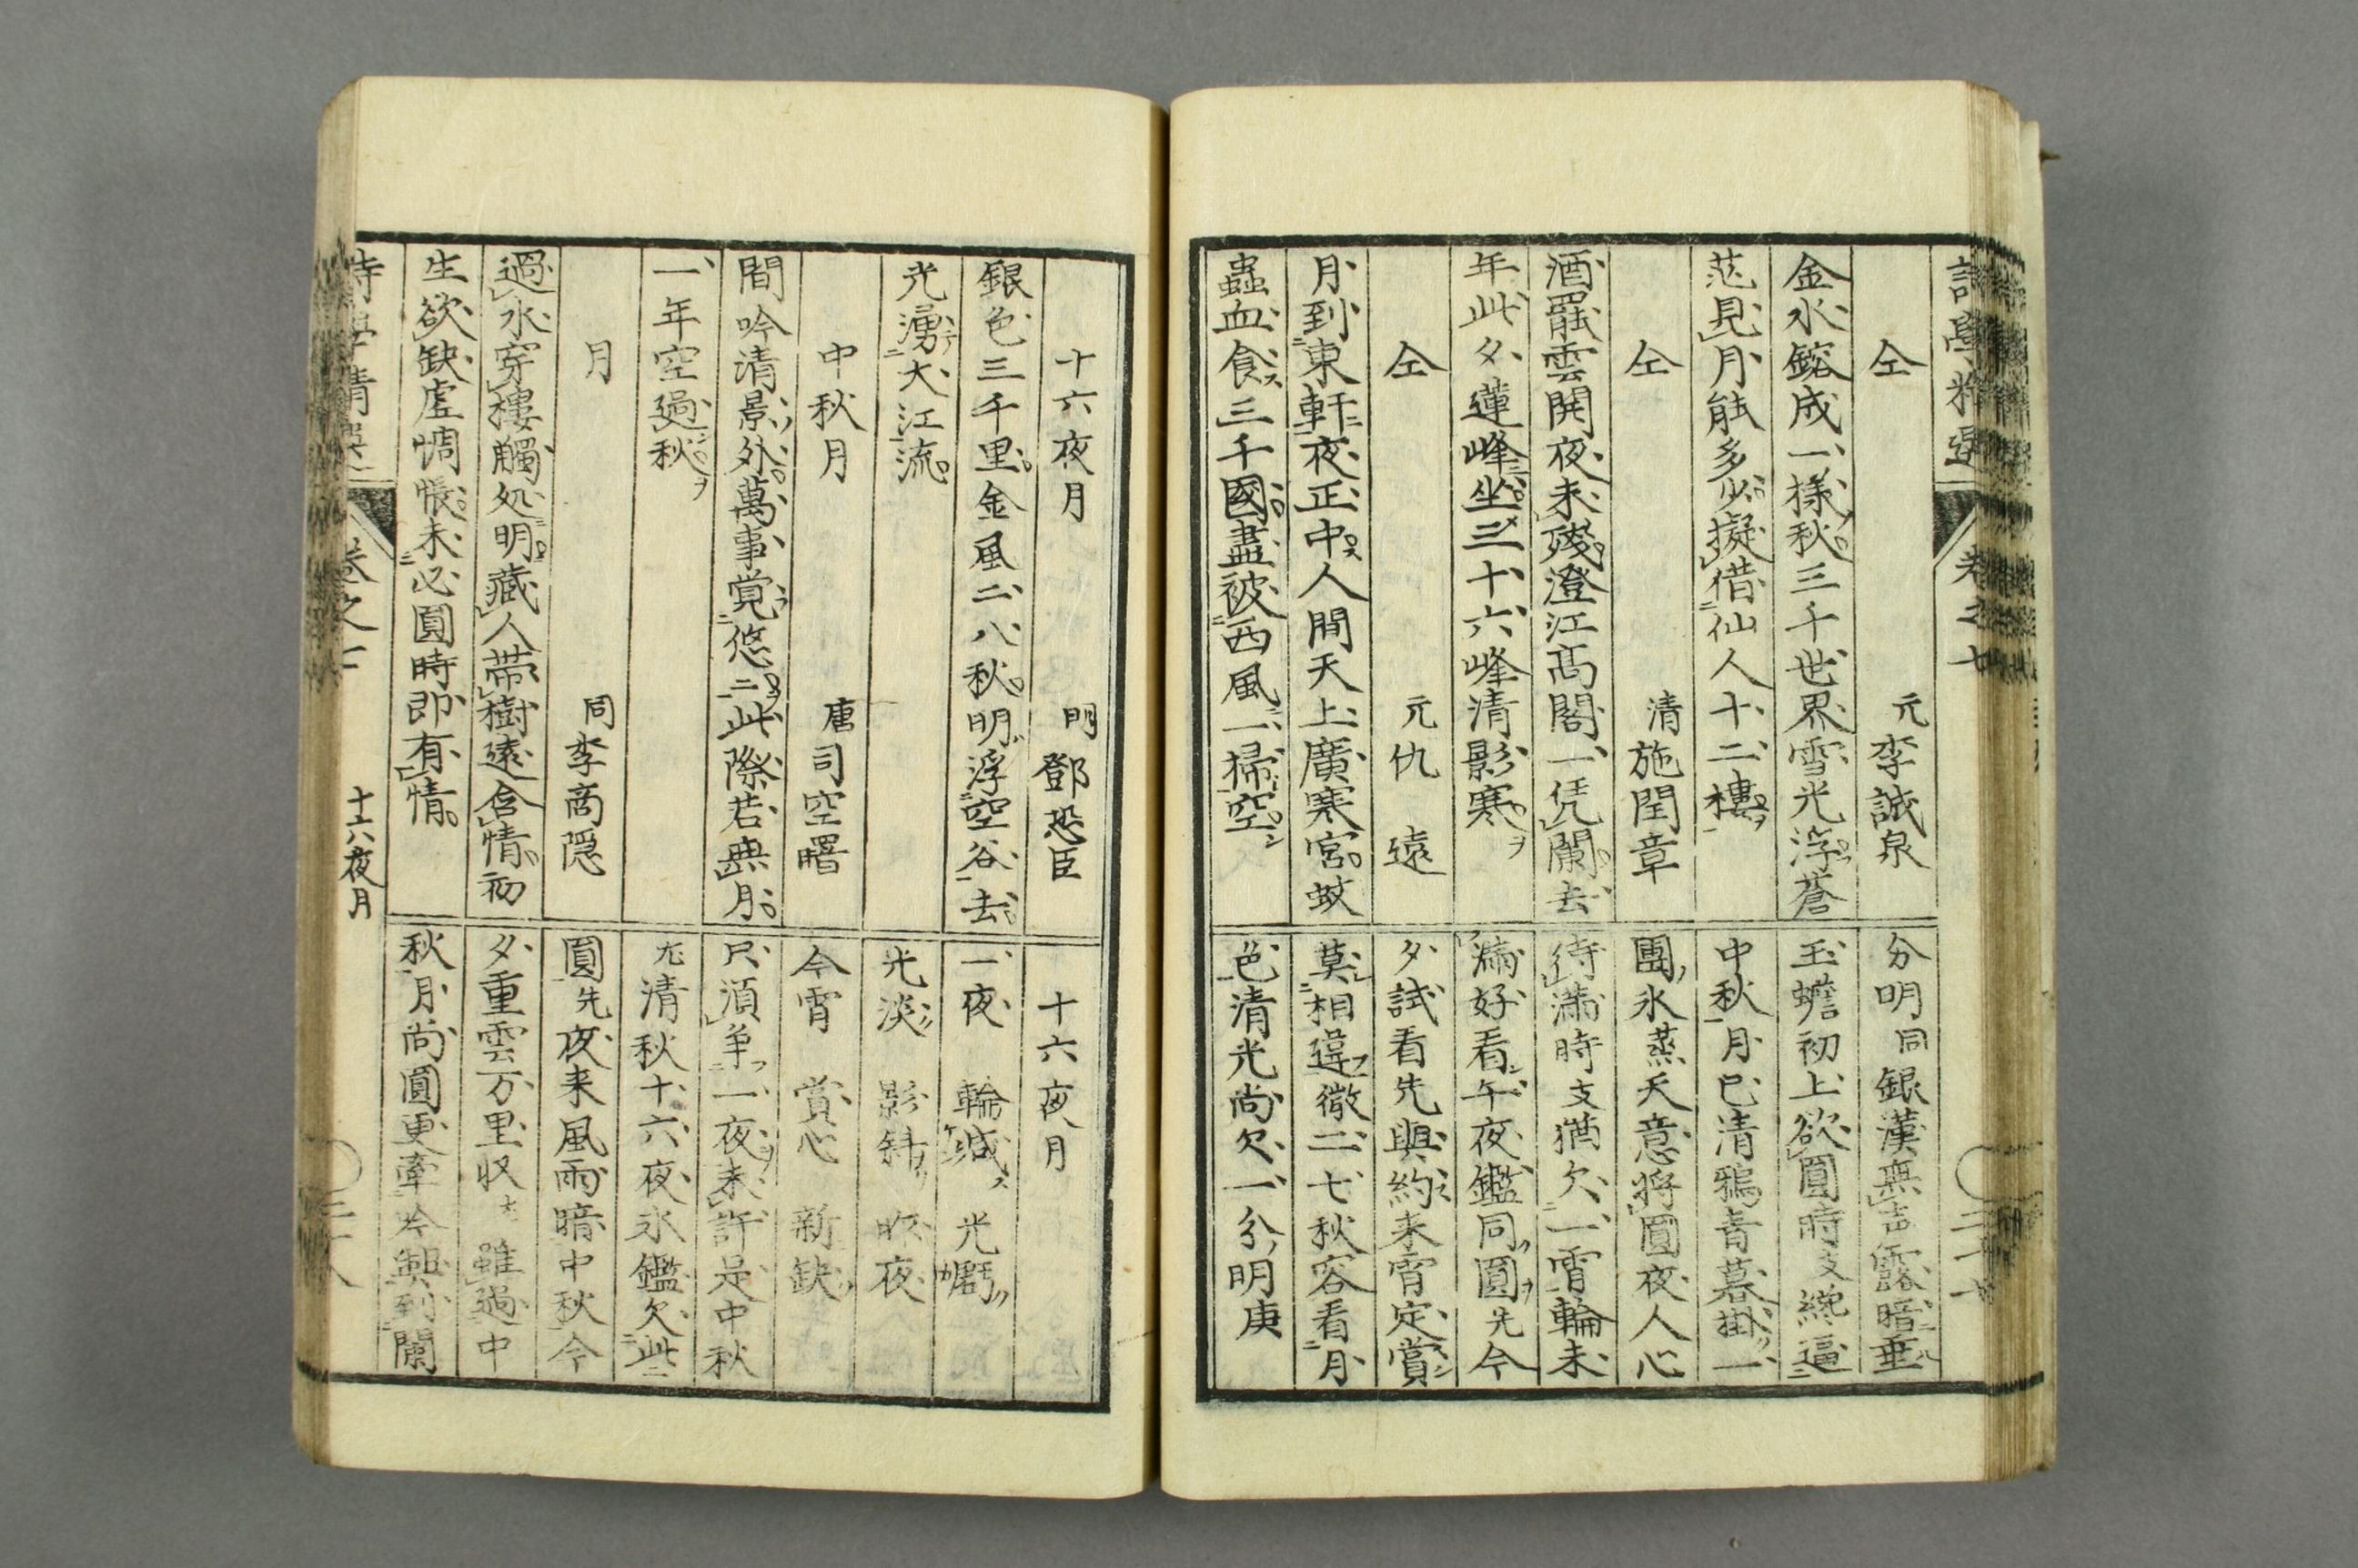 仝　元李誠泉
金水鎔成一様秋三千世界雪光浮蒼
茫見月能多少擬借仙人十二樓
仝　清施閏章
酒罷雲開夜未殘澄江高閣一凭闌去
年此夕蓮峰坐三十六峰清影寒
仝　元仇　遠
月到東軒夜正中人間天上廣寒宮蚊
蟲血食三千國盡被西風一掃空
分明同銀漢無声露暗垂
玉蟾初上欲圓時支纔逼
中秋月已清鴉青暮掛一
團氷蒸天意将圓夜人心
待満時支猶欠一霄輪未
満好看午夜鑑同圓先今
夕試看先與約来宵定賞
莫相違微二七秋容看月
色清光尚欠一分明庚
卷之七
十六夜月　明鄧恐臣
銀色三千里金風二八秋明浮空谷去
光湧大江流
中秋月　唐司空曙
間吟清景外萬事覚悠〻此際若無月
一年空過秋
月　同李商隠
過水穿樓觸処明藏人帯樹遠含情初
生欲缺虚惆悵未必圓時即有情
十六夜月
一夜　輪減　光
光淡　影斜　昨夜
今宵　賞心　新缺
只須争一夜未許是中秋
尤清秋十六夜氷鑑欠此
圓先夜来風雨暗中秋今
夕重雲万里収　雖過中
秋月尚圓更牽吟興到闌
卷之七　十六夜月